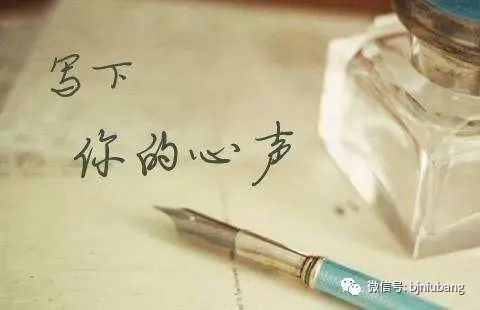 写下
你的心声
微信号: bjniubang